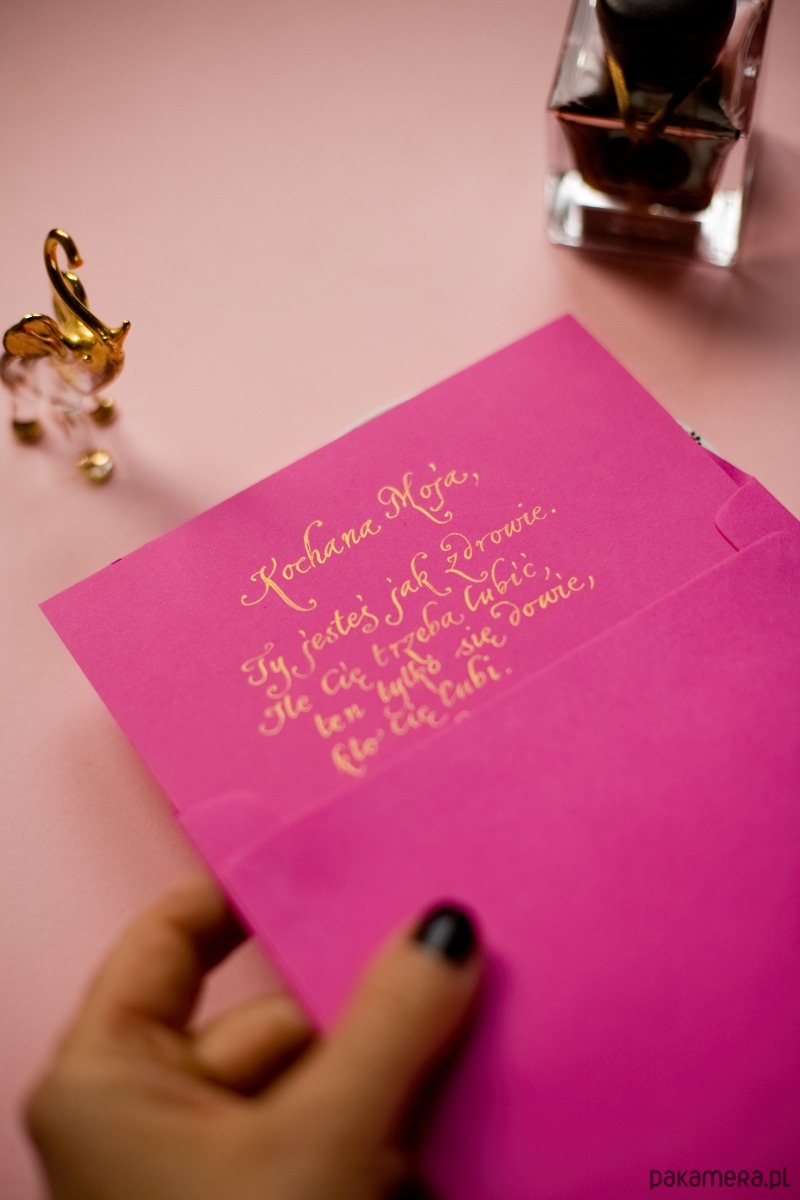 Kochana Moja,
Ty jesteś jak zdrowie.
Ile Cię trzeba lubić,
ten tylko się dowie,
kto cię lubi.
pakamera.pl